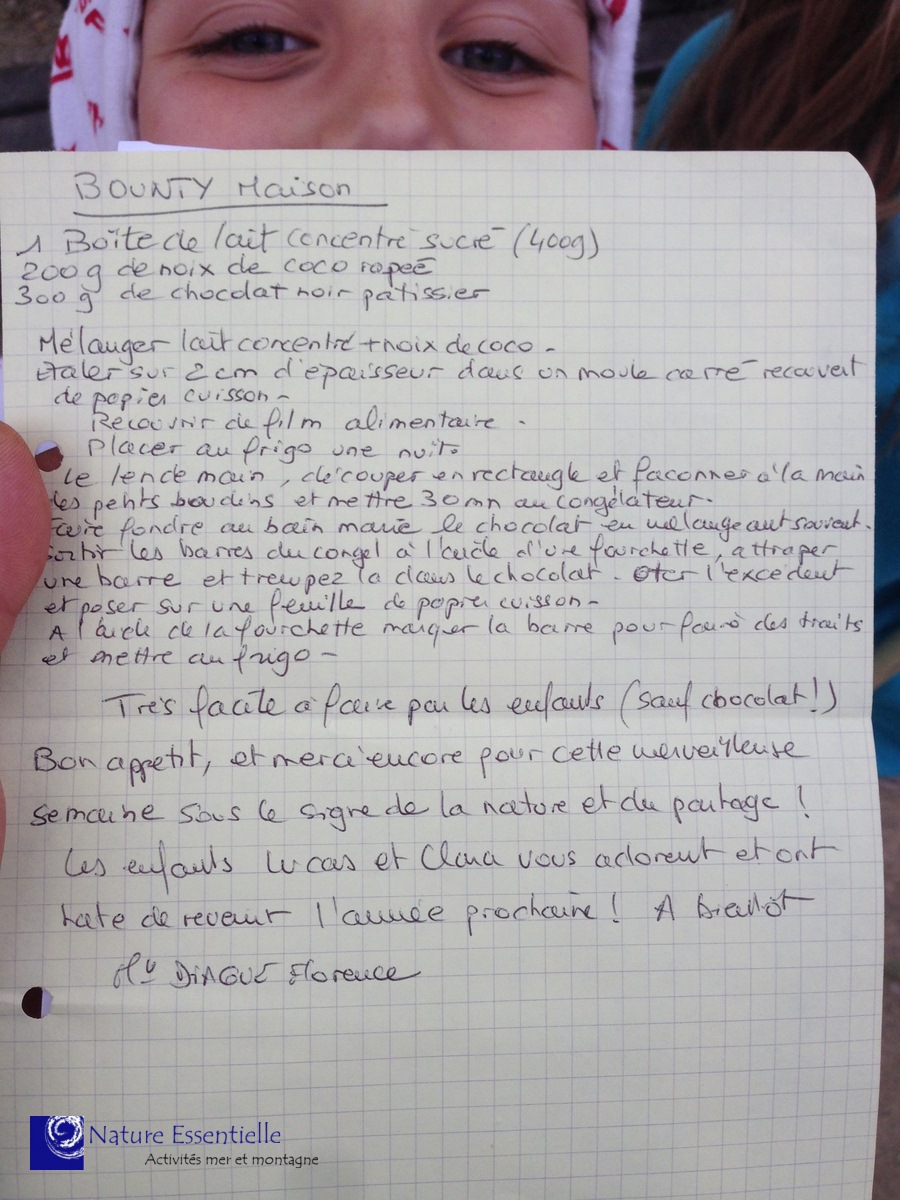 BOUNTY Maison
1 Boîte de lait concentré sucré (400g)
200 g de noix de coco rapée
300 g de chocolat noir patissier
Mélanger lait concentré + noix de coco -
Etaler sur 2 cm d'épaisseur dans un moule carré recouvert
de papier cuisson -
Recouvrir de film alimentaire.
Placer au frigo une nuit.
Le lendemain, découper en rectangle et façonner à la main
des petits boudins et mettre 30 mn au congélateur.
Faire fondre au bain marie le chocolat en mélangeant souvent.
Sortir les barres du congel à l'aide d'une fourchette, attraper
une barre et trempez la dans le chocolat. Oter l'excédent
et poser sur une feuille de papier cuisson -
A l'aide de la fourchette marquer la barre pour faire des traits
et mettre au frigo -
Très facile à faire par les enfants (sauf chocolat!)
Bon appetit, et merci encore pour cette merveilleuse
semaine sous le signe de la nature et du partage !
Les enfants Lucas et Clara vous adorent et ont
hate de revenir l'année prochaine ! A bientôt
DIAGUE Florence
Nature Essentielle
Activités mer et montagne